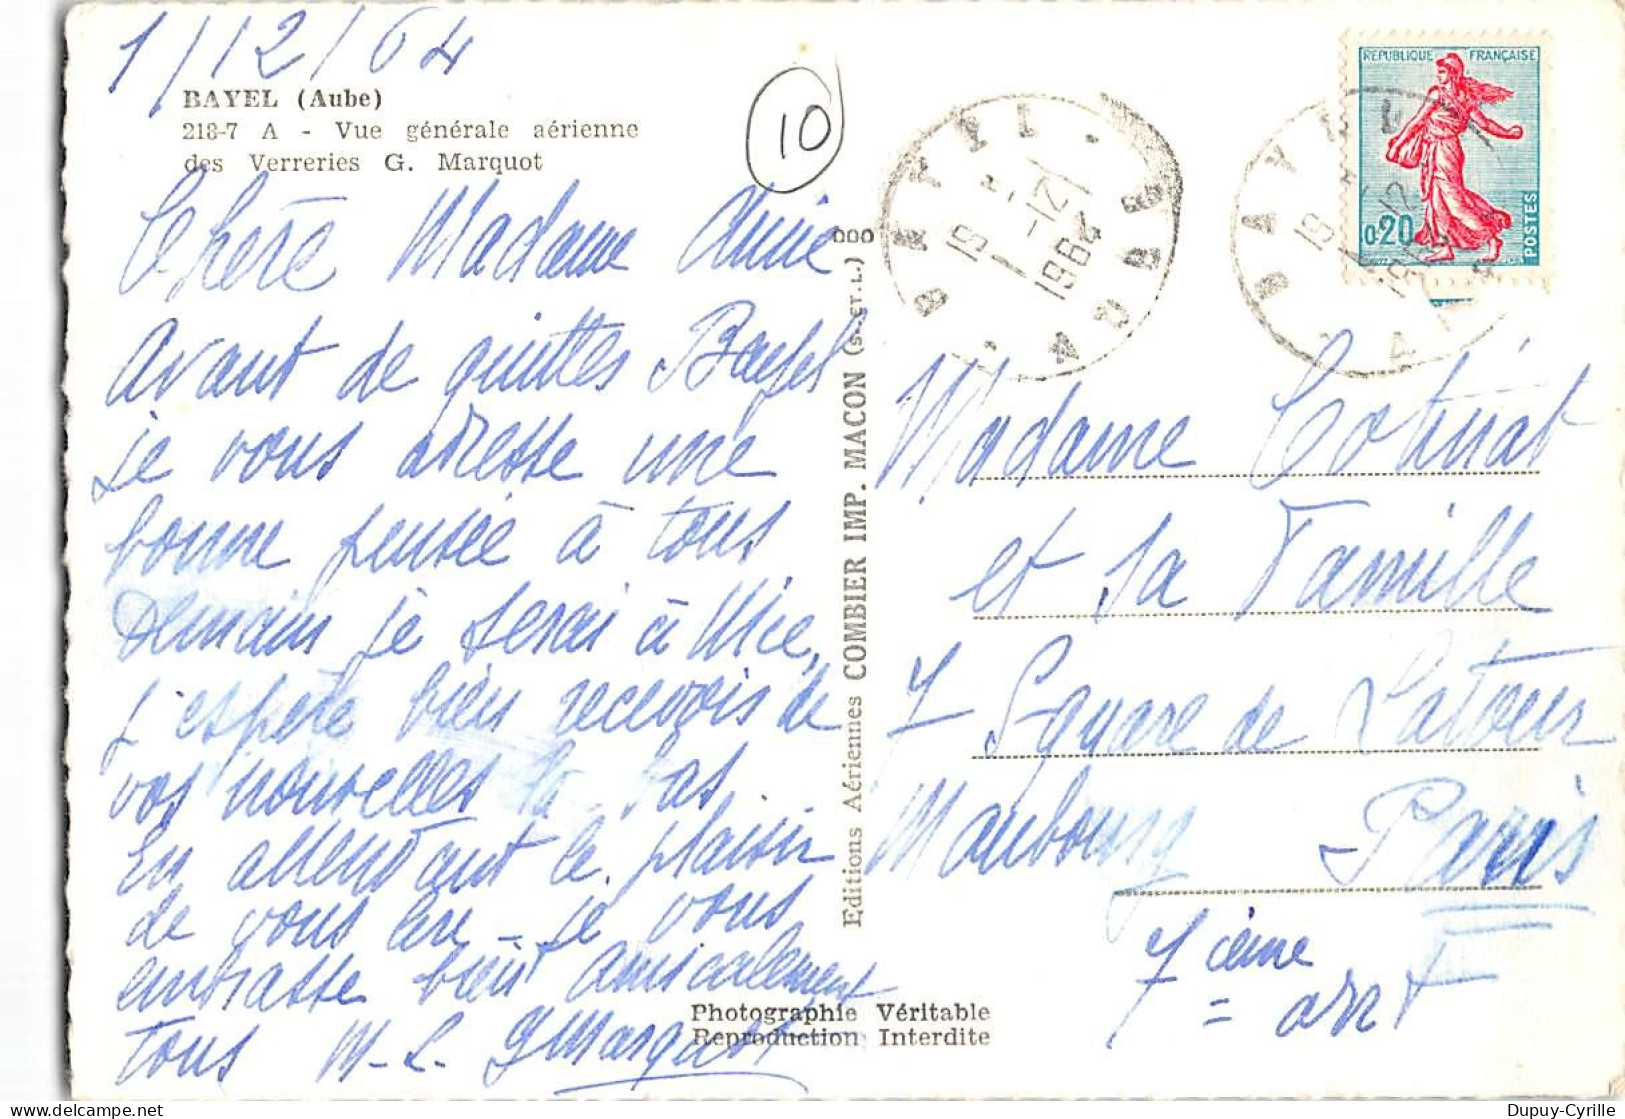 1/12/64
BAYEL (Aube)
218-7 A - Vue générale aérienne
des Verreries G. Marquot
10
Chère Madame Amie
Avant de quitter Bayel
je vous adresse une
bonne pensée à tous
Demain je serai à Nice,
j'espère bien recevoir de
vos nouvelles là-bas.
En attendant le plaisir
de vous lire - je vous
embrasse bien amicalement
tous M-L. G Marquot
000
Editions Aériennes COMBIER IMP. MACON (S.-ET-L.)
Photographie Véritable
Reproduction Interdite
BAYEL AUBE
19 H
1-12
1964
BAYEL
19 H
-12
REPUBLIQUE FRANÇAISE
0.20
POSTES
Madame Cotinat
et sa Famille
7 Square de Latour
Maubourg Paris
7 ième
= arrt
Dupuy-Cyrille